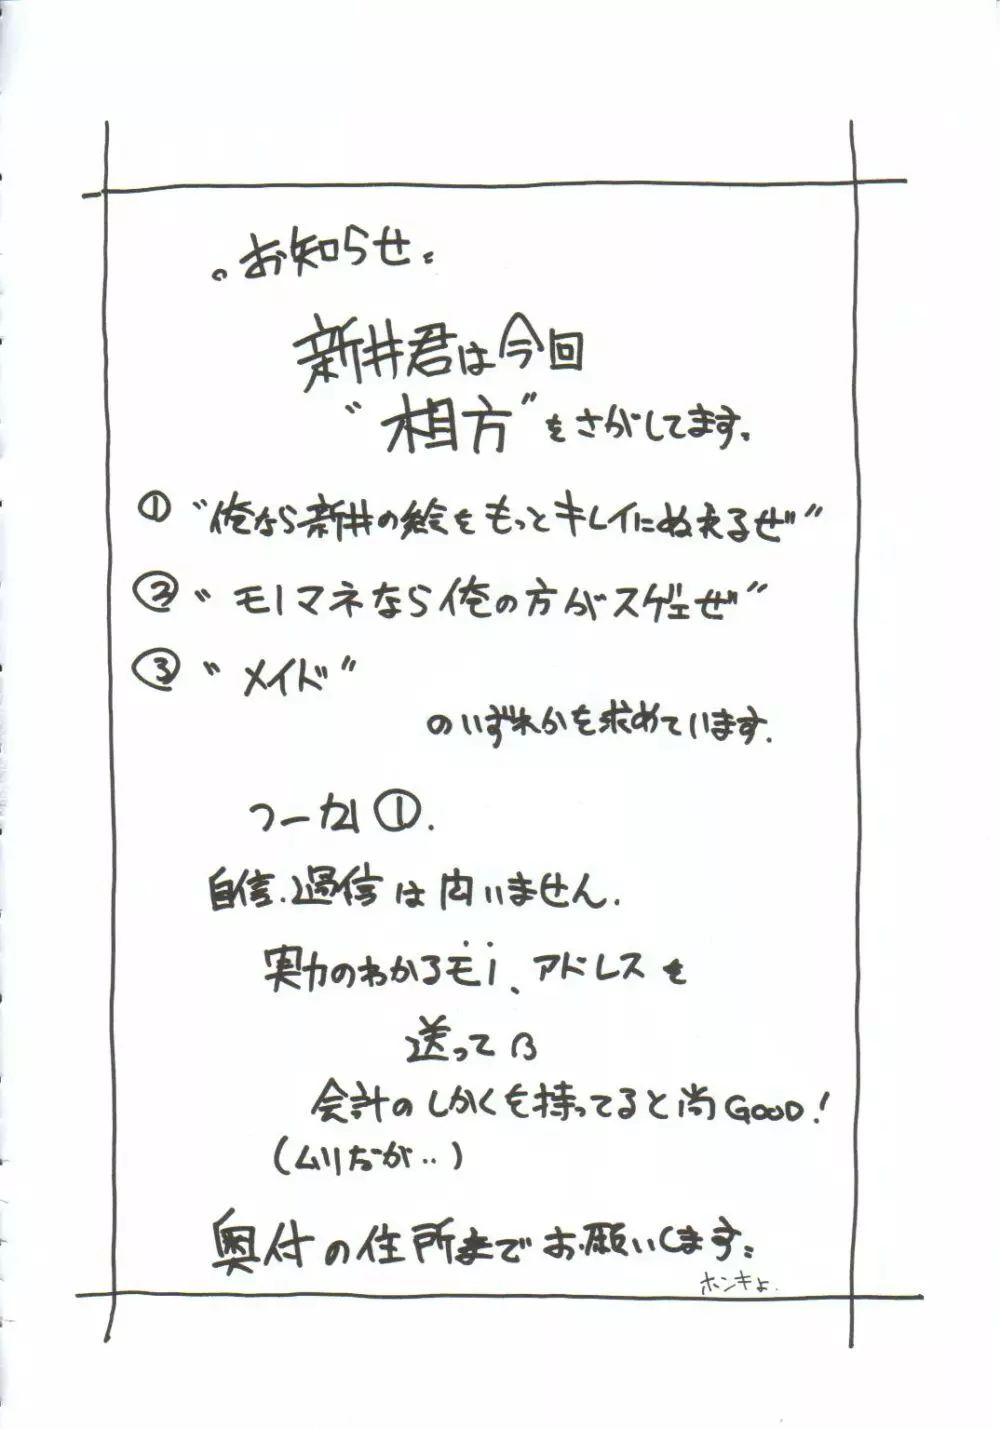 。お知らせ。
新井君は今回
“相方”をさがしてます。
① “俺なら新井の絵をもっとキレイにぬえるぜ”
② “モノマネなら俺の方がスゲェぜ”
③ “メイド”
のいずれかを求めています.
つーカ ①.
自信.過信は問いません.
実力のわかるモノ、アドレスを
送ってβ
会計のしかくを持ってると尚GOOD!
(ムリだが..)
奥付の住所までお願いします。
ホンキよ.